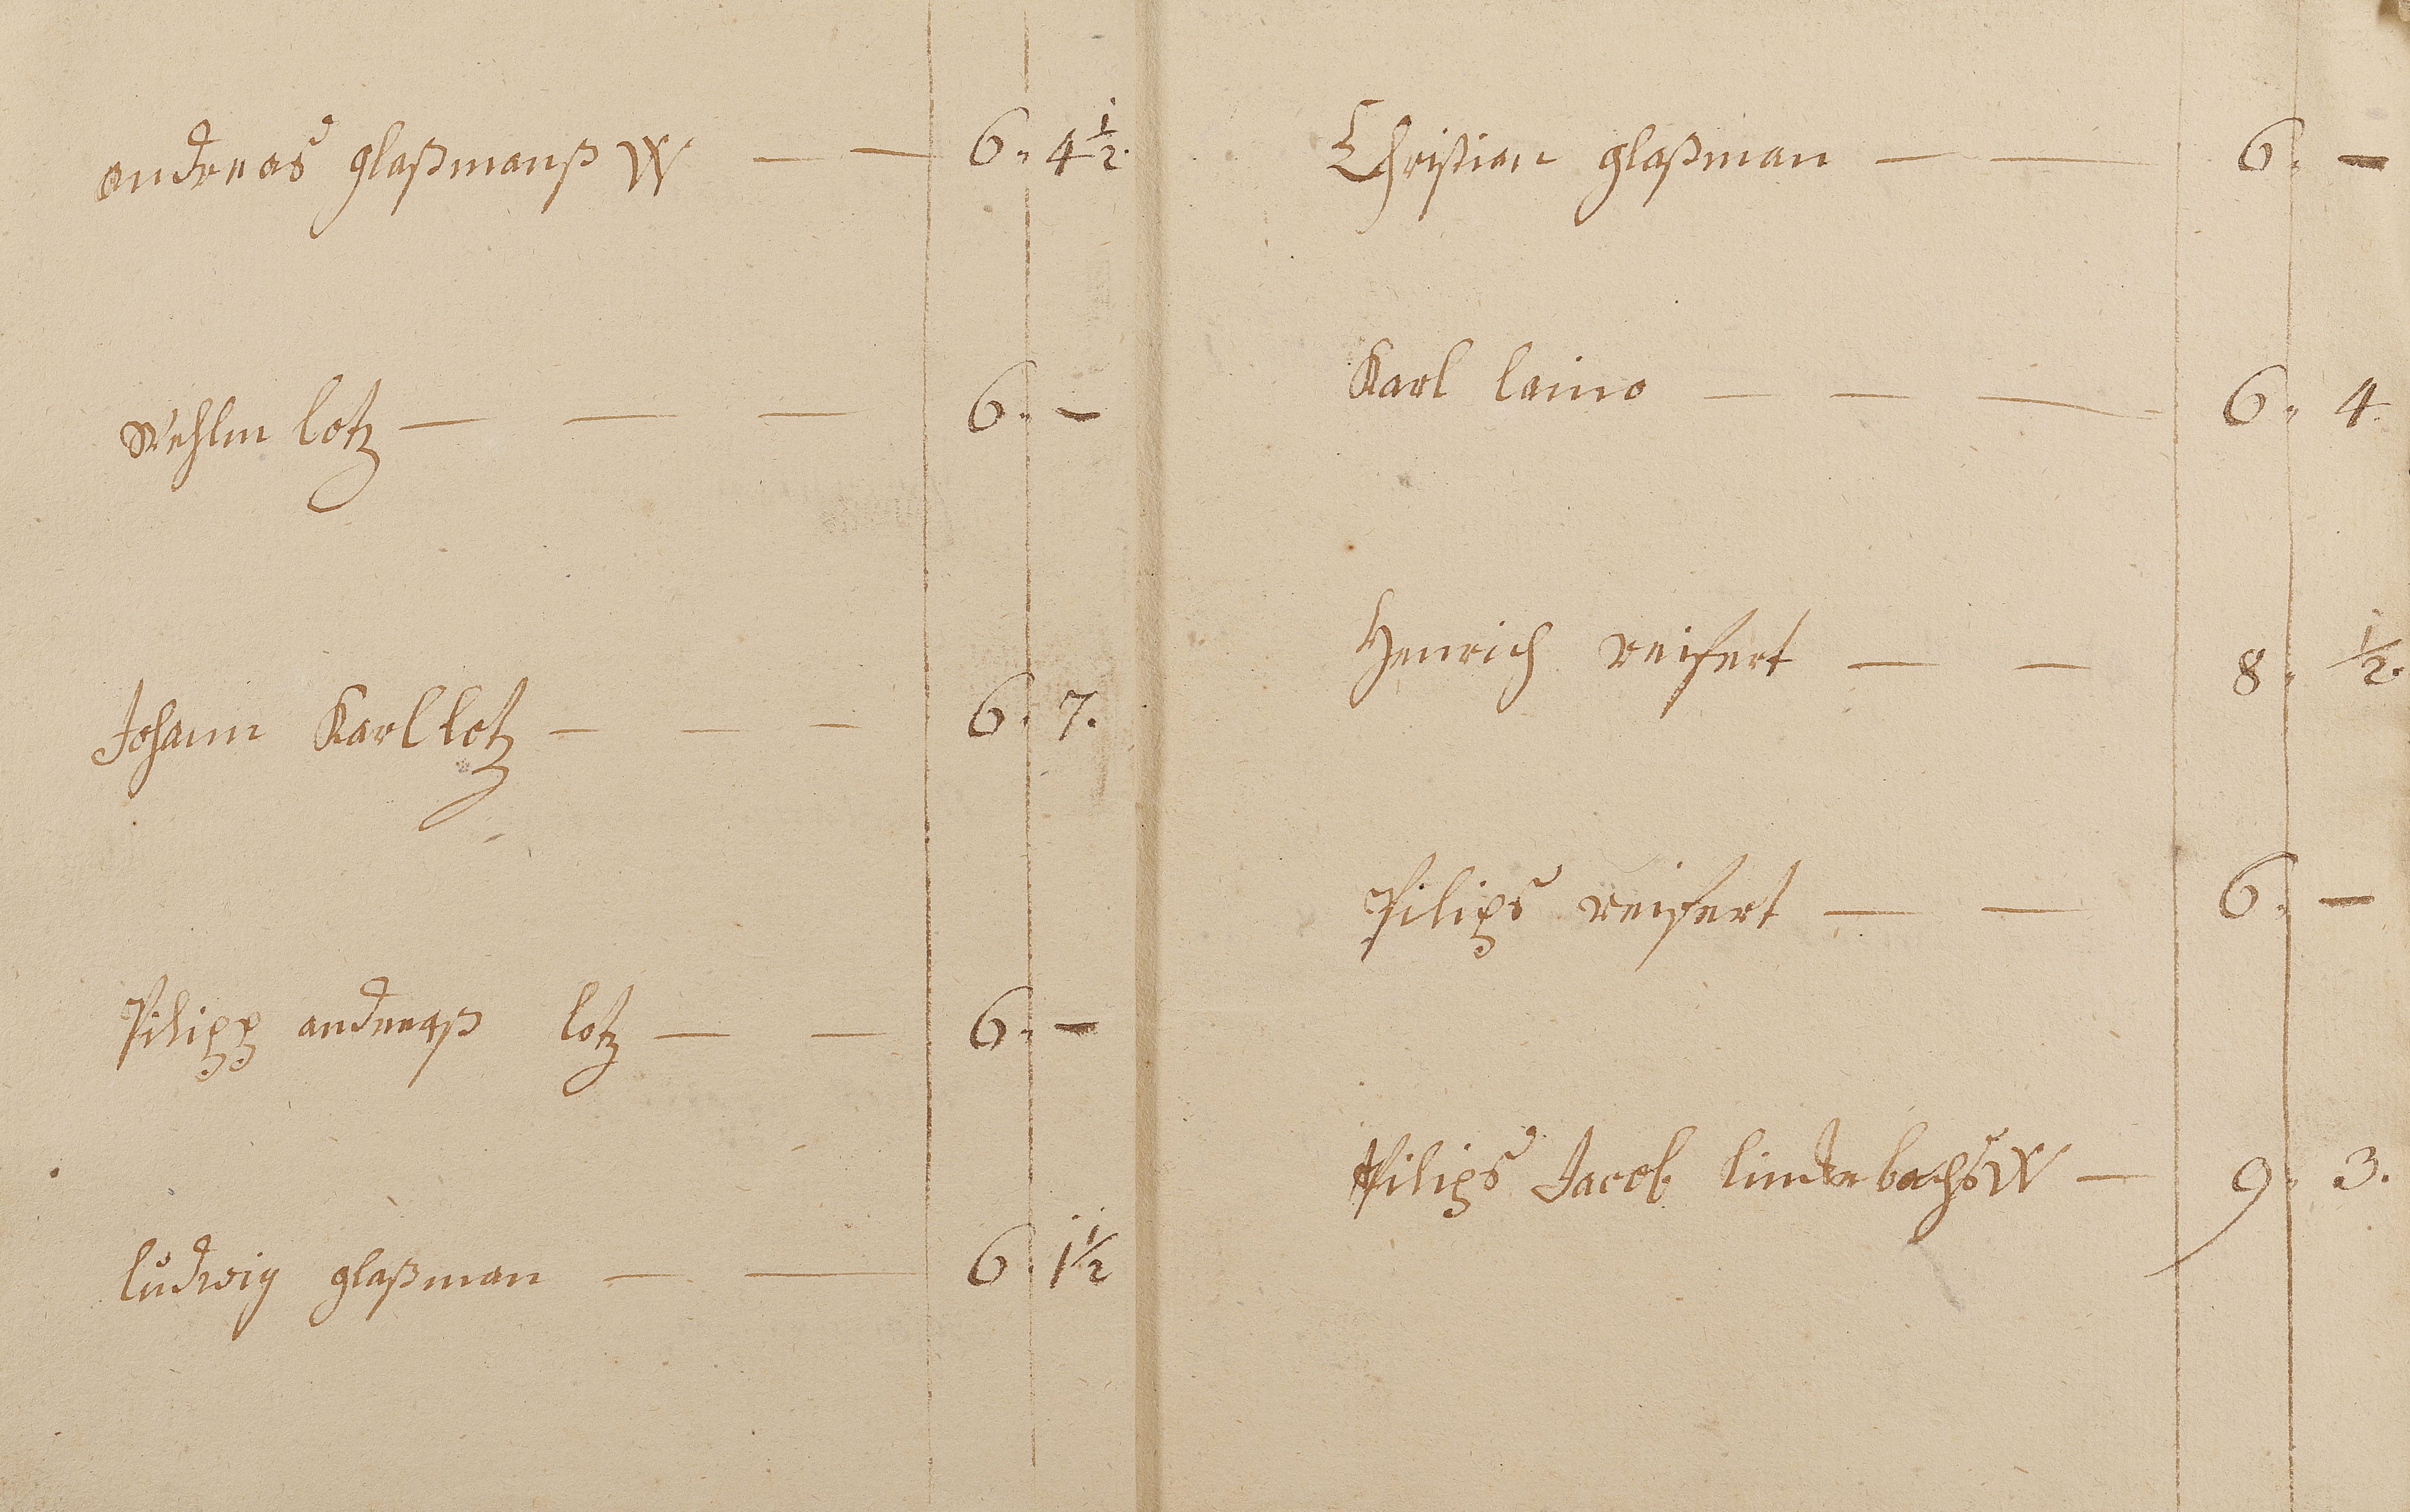 andreas glaßmanß W — — 6. 4 1/2.
Wehlm lotz — — — 6. —
Johann Karl lotz — — — 6. 7.
Pilipp andreaß lotz — — 6. —
ludwig glaßman — — 6. 1 1/2
Christian glaßman — — 6. —
Karl laino — — — 6. 4.
Henrich reifert — — 8. 1/2.
Pilips reifert — — 6. —
Pilips Jacob lindebachs W — 9. 3.